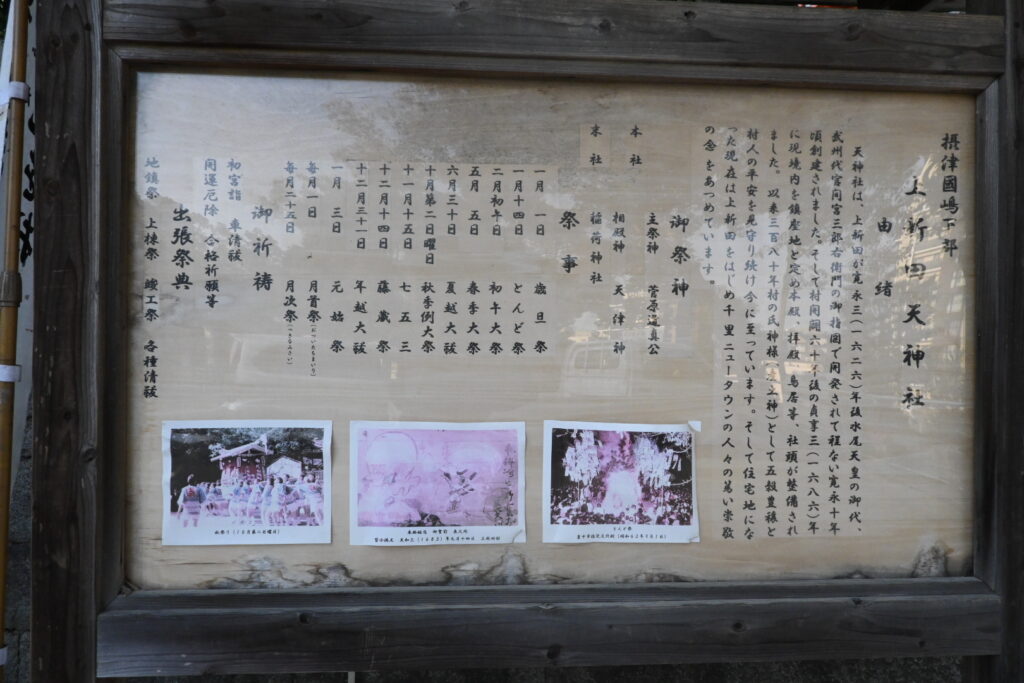 摂津國嶋下郡
上新田天神社
由緒
天神社は、上新田が寛永三(一六二六)年後水尾天皇の御代、
武州代官間宮三郎右衛門の御指図で開発されて程ない寛永十年
頃創建されました。そして村開闢六十年後の貞享三(一六八六)年
に現境内を鎮座地と定め本殿、拝殿、鳥居等、社頭が整備され
ました。以来三百八十年村の氏神様(産土神)として五穀豊穣と
村人の平安を見守り続け今に至っています。そして住宅地にな
った現在は上新田をはじめ千里ニュータウンの人々の篤い崇敬
の念をあつめています。
御祭神
本社 主祭神 菅原道真公
相殿神 天津神
末社 稲荷神社
祭事
一月一日 歳旦祭
一月十四日 とんど祭
二月初午日 初午大祭
五月五日 春季大祭
六月三十日 夏越大祓
十月第二日曜日 秋季例大祭
十一月十五日 七五三
十二月十四日 藤蔵祭
十二月三十一日 年越大祓
一月三日 元始祭
毎月一日 月首祭(おついたちまいり)
毎月二十五日 月次祭(つきなみさい)
御祈祷
初宮詣 車清祓
開運厄除 合格祈願等
出張祭典
地鎮祭 上棟祭 竣工祭 各種清祓
秋祭り(10月第二日曜日)
年九月十四日
とんど祭